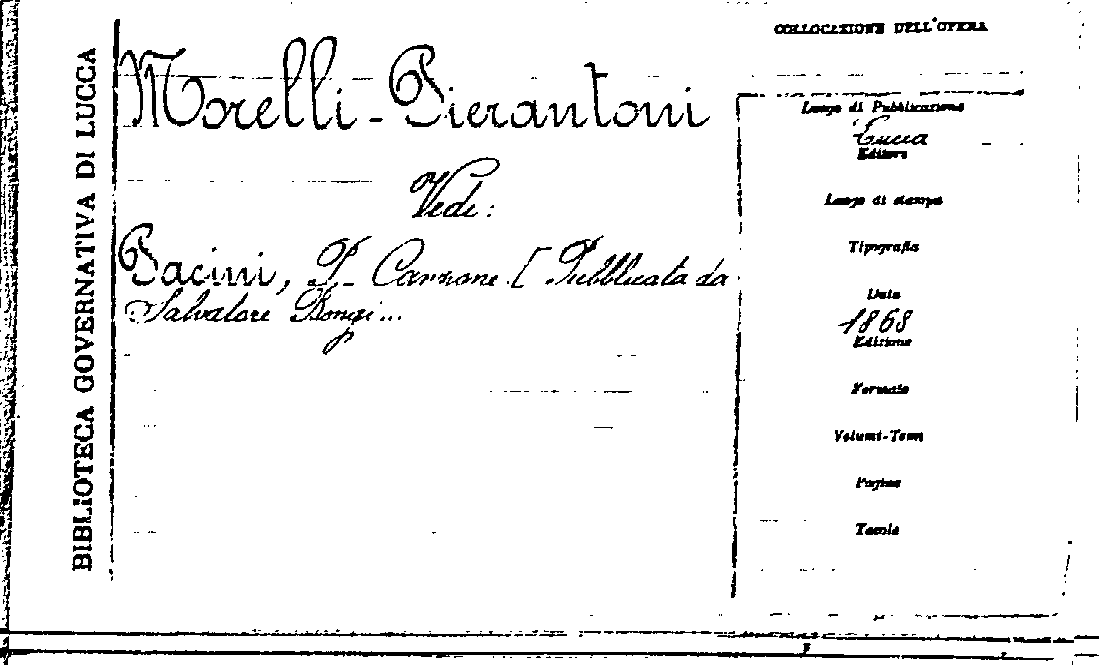 BIBLIOTECA GOVERNATIVA DI LUCCA
Morelli-Pierantoni
Vedi:
Pacini, P. Canzone [Pubblicata da
Salvatore Bongi...
COLLOCAZIONE DELL'OPERA
Luogo di Pubblicazione
Lucca
Editore
Luogo di stampa
Tipografia
Data
1868
Edizione
Formato
Volumi-Tomi
Pagine
Tavole